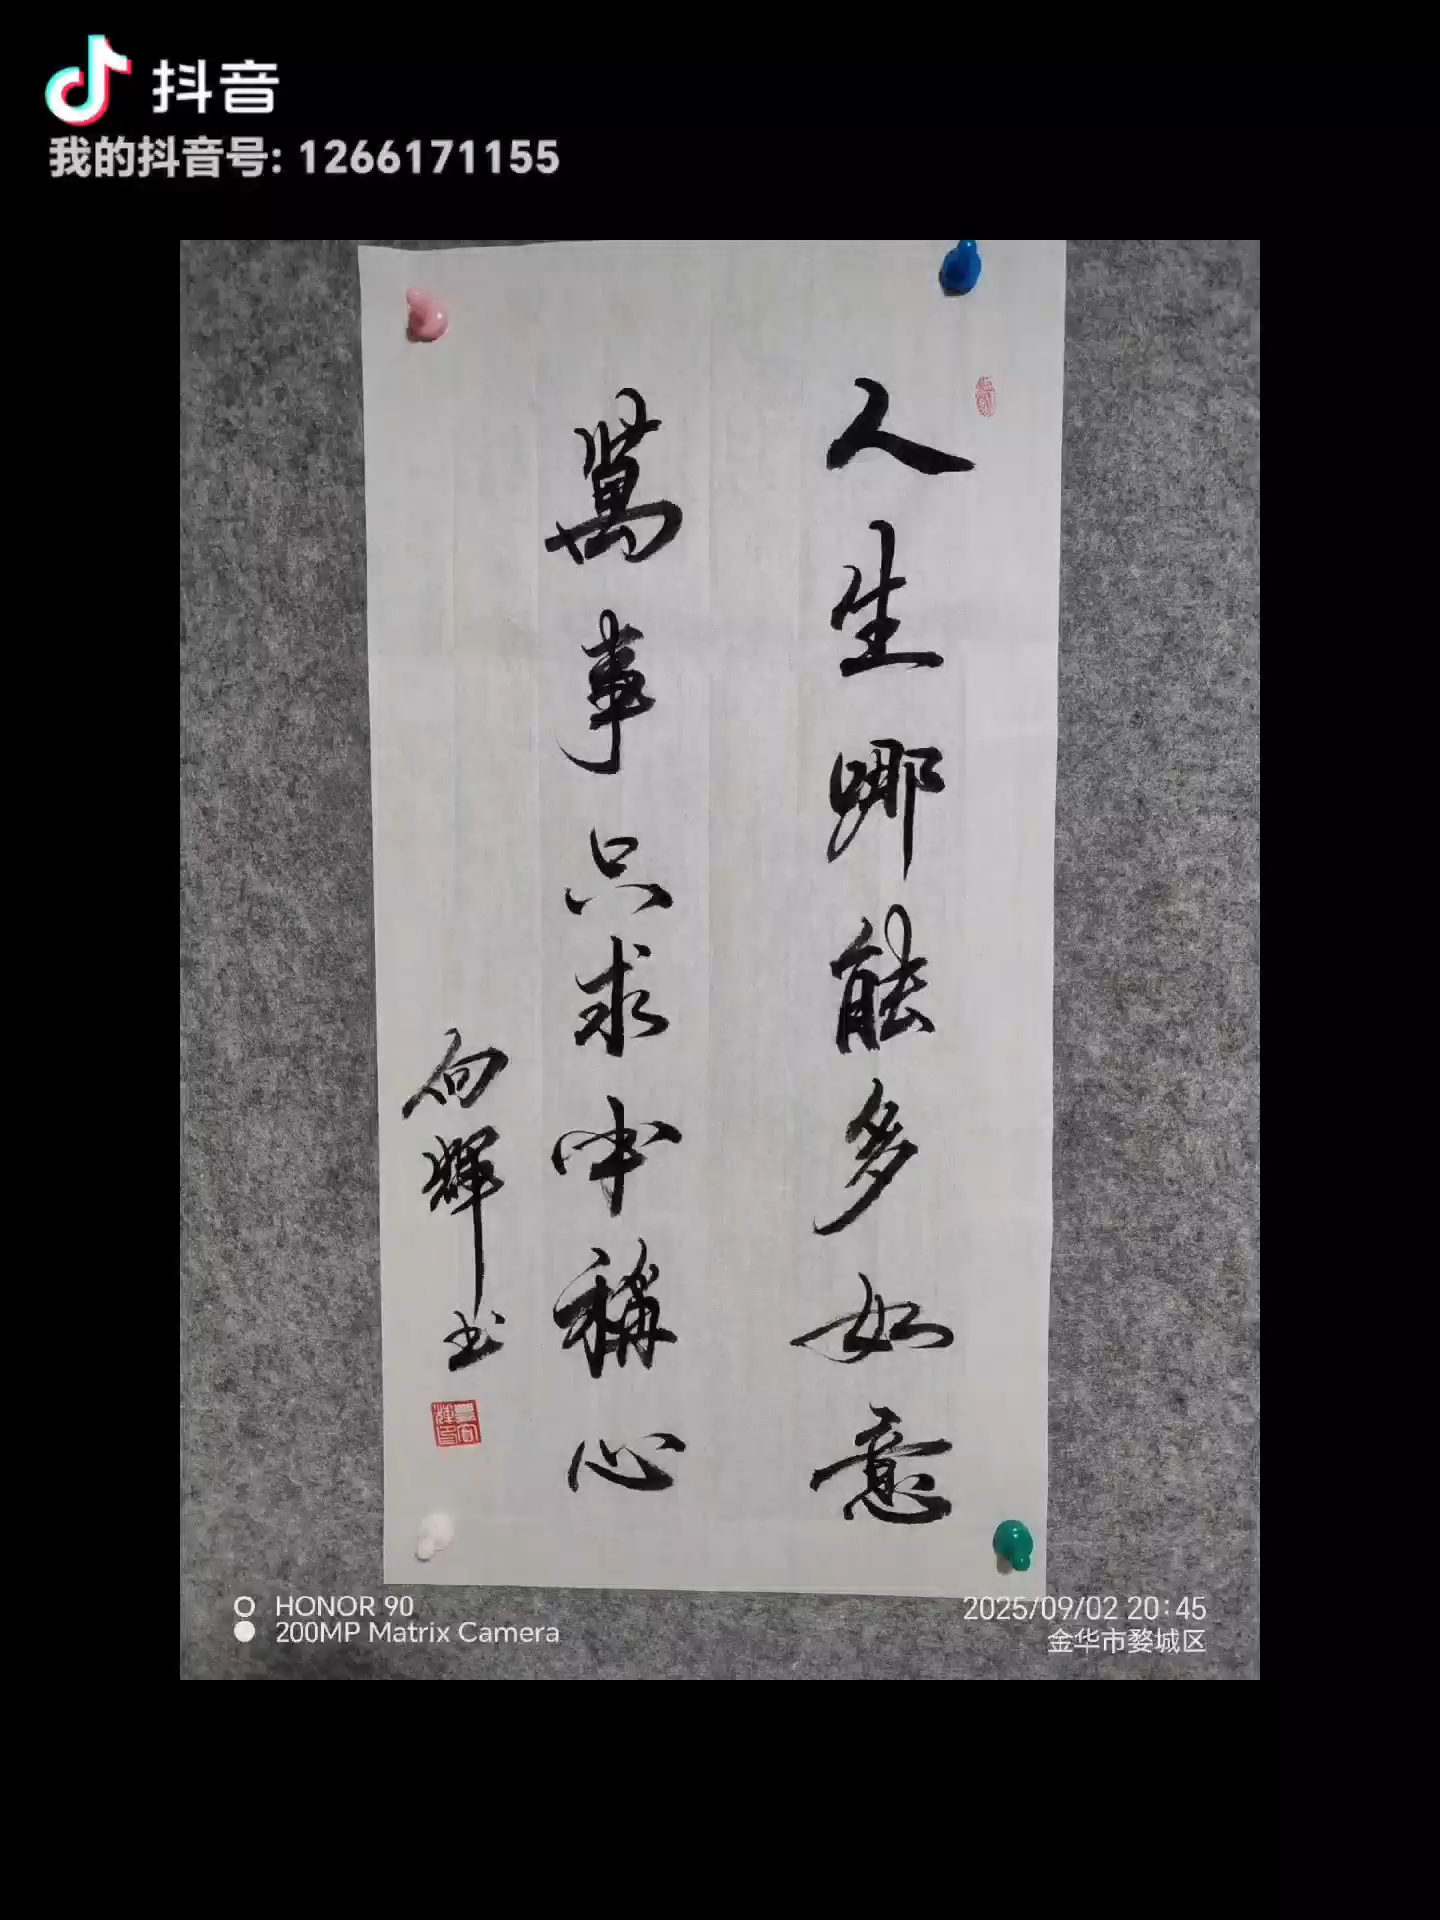 抖音
我的抖音号: 1266171155
人生哪能多如意
萬事只求半稱心
向輝书
HONOR 90
200MP Matrix Camera
2025/09/02 20:45
金华市婺城区